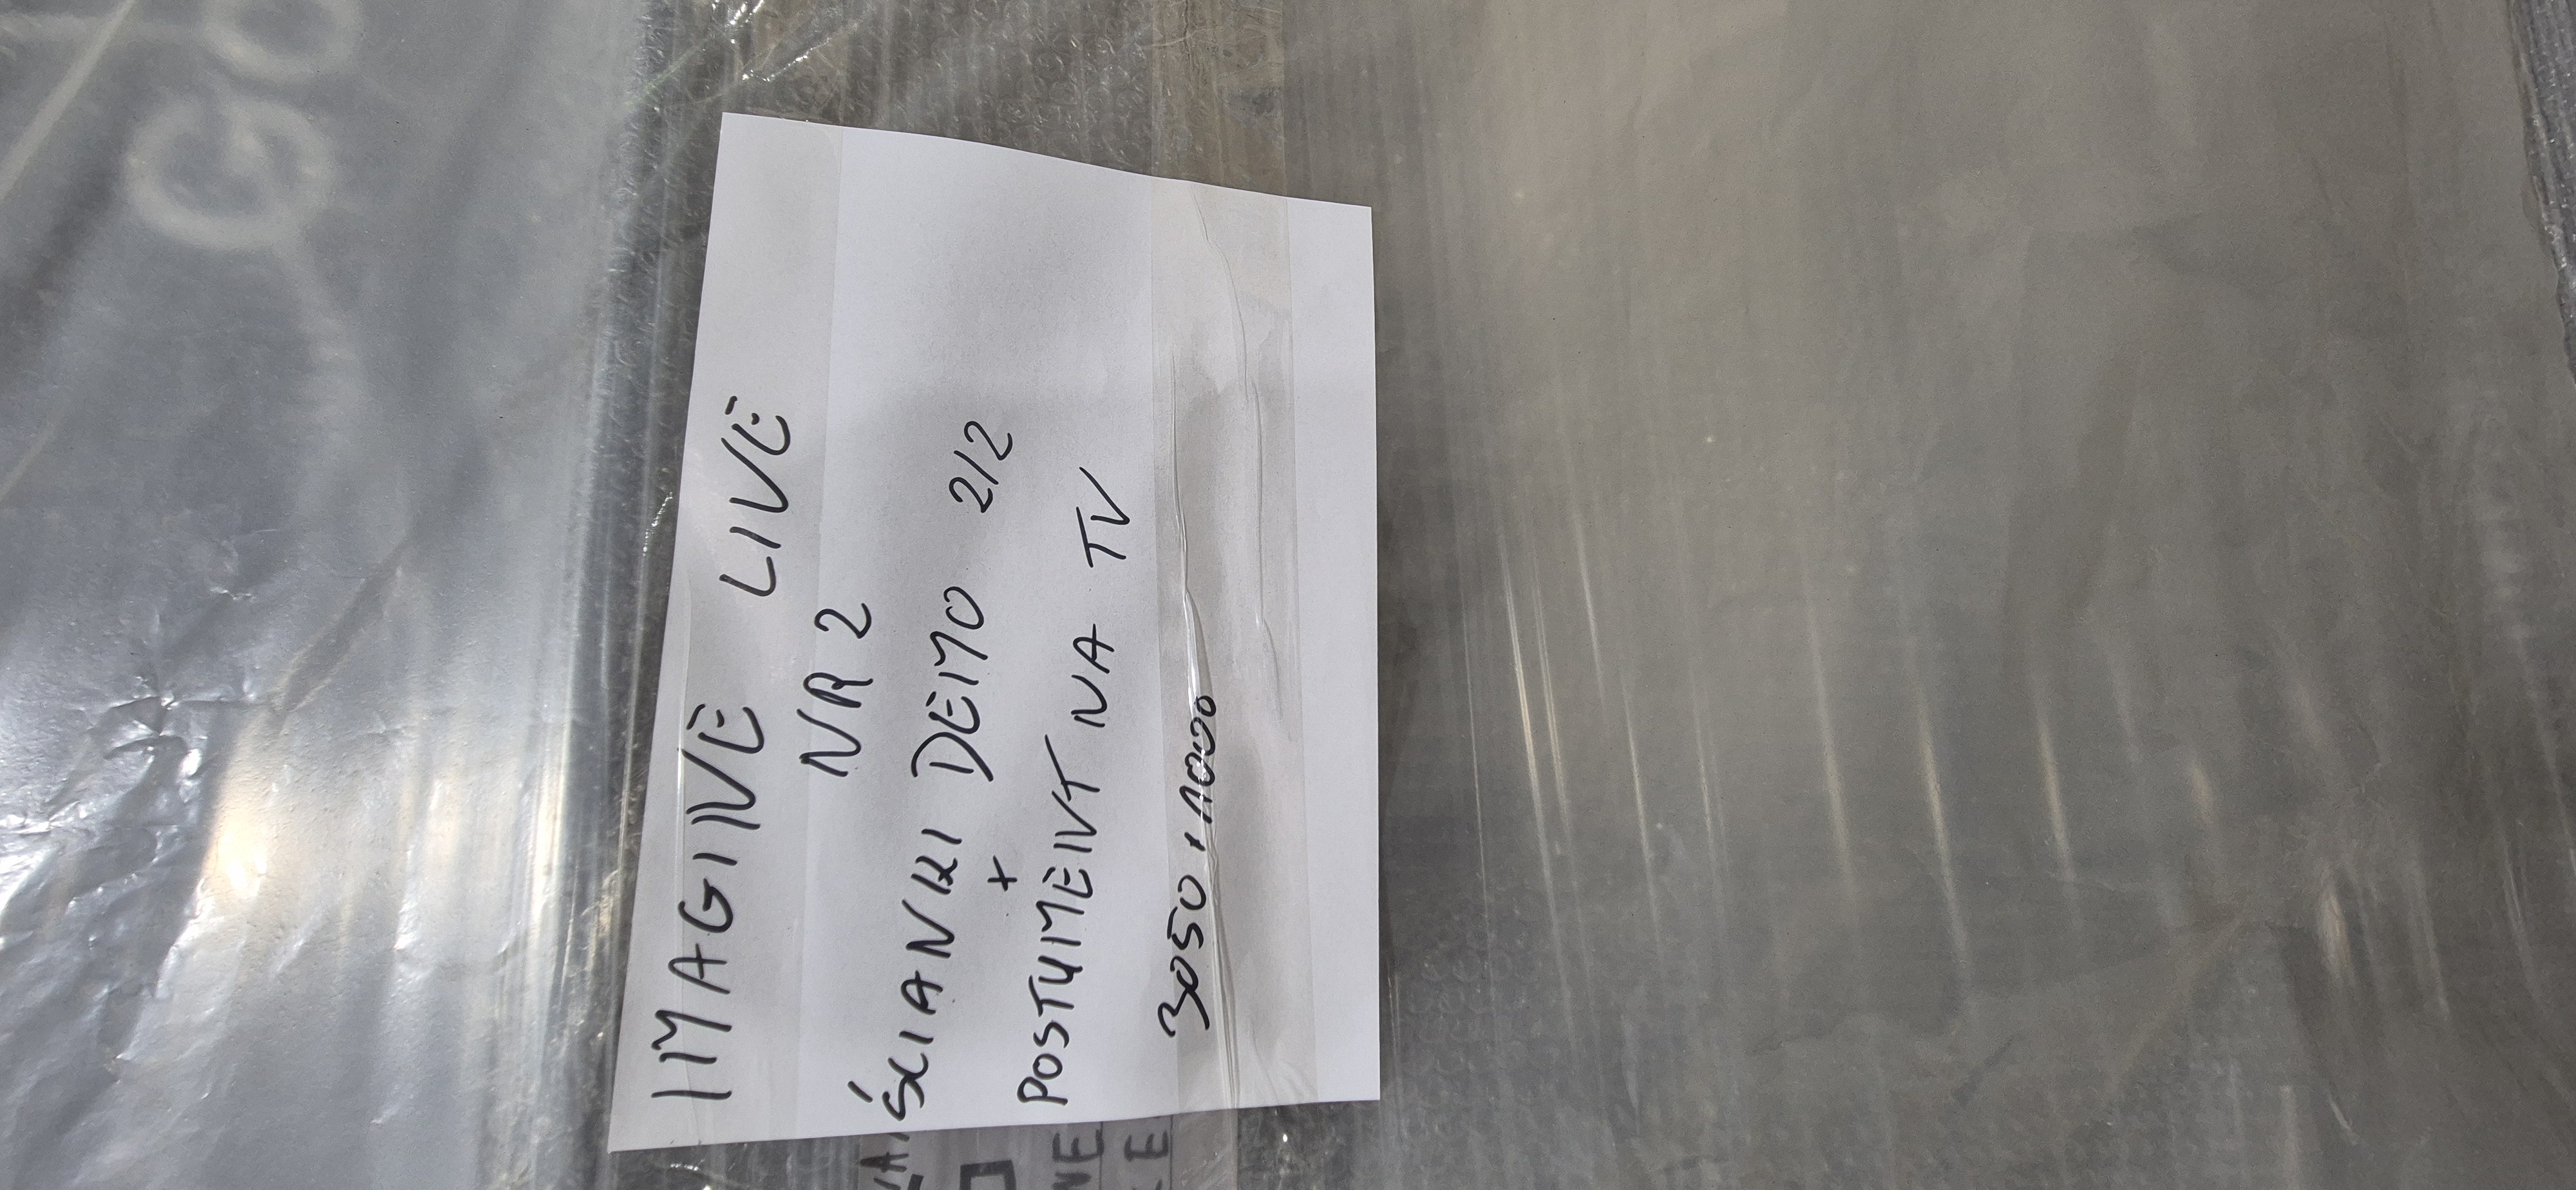 Go
IMAGINE LIVE
NR 2
ŚCIANKI DEMO 2/2
+
POSTUMENT NA TV
3050 x 1000